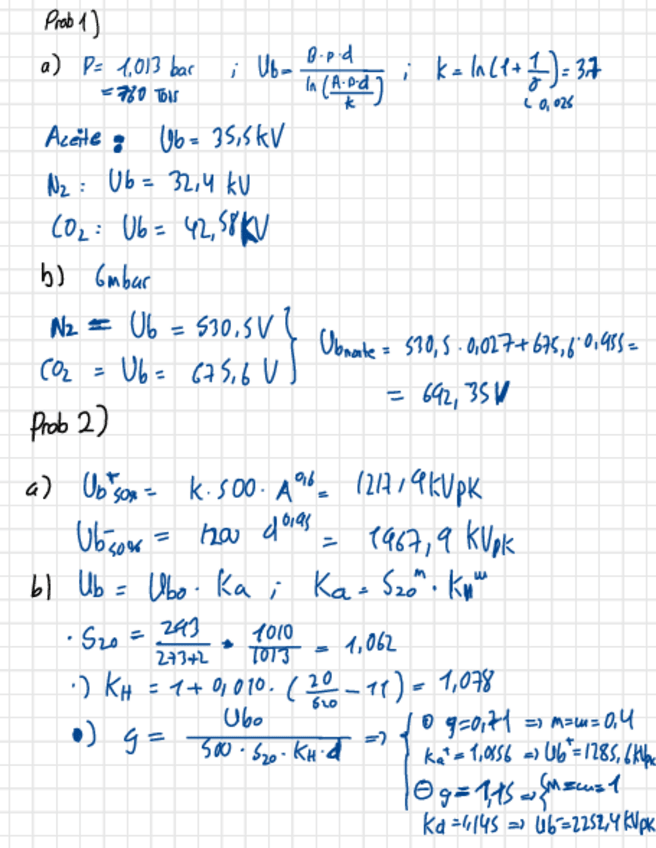 Prob 1)
a) P = 1,013 bar ; Ub = B·p·d / ln(A·p·d / k) ; k = ln(1 + 1/γ) = 3,7
= 760 Torr
↳ 0,025
Aceite : Ub = 35,5 kV
N2 : Ub = 32,4 kV
CO2 : Ub = 42,58 kV
b) 6mbar
N2 = Ub = 530,5 V
CO2 = Ub = 675,6 V
Ubmarte = 530,5 · 0,027 + 675,6 · 0,955 =
= 692,35 V
Prob 2)
a) Ub+50% = k · 500 · A^0,6 = 1217,9 kVpk
Ub-50% = 1200 d^0,95 = 1967,9 kVpk
b) Ub = Ubo · Ka ; Ka = S20^m · KH^w
· S20 = 293 / 273+2 · 1010 / 1013 = 1,062
·) KH = 1 + 0,010 · (20 / S20 - 11) = 1,078
•) g = Ubo / 500 · S20 · KH · d => { ⊕ g = 0,71 => m = w = 0,4
Ka+ = 1,0556 => Ub+ = 1285,6 kVpk
⊖ g = 1,15 => { m = w = 1
Ka = 1,145 => Ub- = 2252,4 kVpk